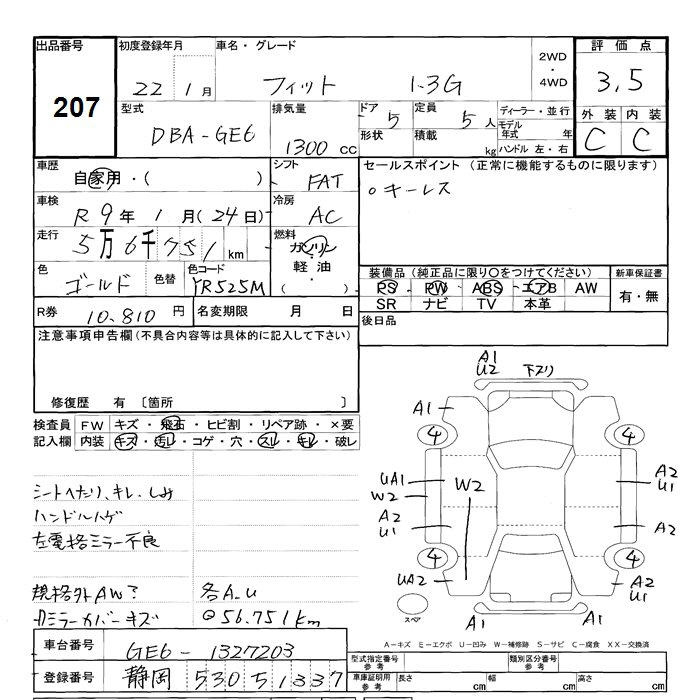 出品番号 初度登録年月 車名・グレード 2WD・4WD 評価点
207 22 1月 フィット 1.3G 3.5
型式 排気量 ドア 5 定員 5人 ディーラー・並行 外装 内装
DBA-GE6 1300cc 形状 積載 kg モデル年式 年 C C
ハンドル 左・右
車歴 自家用・( ) シフト FAT セールスポイント (正常に機能するものに限ります)
車検 R9年1月(24日) 冷房 AC ○キーレス
走行 5万6千751km 燃料 ガソリン・軽油・( )
色 ゴールド 色替 色コード YR525M 装備品 (純正品に限り○をつけてください) 新車保証書
PS PW ABS エアB AW 有・無
SR ナビ TV 本革
R券 10.810円 名変期限 月 日 後日品
注意事項申告欄 (不具合内容等は具体的に記入して下さい)
修復歴 有 〔箇所 〕
検査員 FW キズ・飛石・ヒビ割・リペア跡・×要
記入欄 内装 キズ・汚レ・コゲ・穴・スレ・キレ・破レ
シートへたり、キレ、しみ
ハンドルハゲ
左電格ミラー不良
規格外AW? 各A.U
ミラーカバーキズ ◎56.751km
A1
U2 下スリ
A1
4 4
UA1 A2
W2 W2 U1
A2 A2
U1
4 4
UA2 A2
U1
スペア A1 A1
A-キズ E-エクボ U-凹み W-補修跡 S-サビ C-腐食 XX-交換済
車台番号 GE6-1327203 型式指定番号 参考 類別区分番号 参考
登録番号 静岡 530 5 1337 車庫証明用 参考 長さ cm 幅 cm 高さ cm